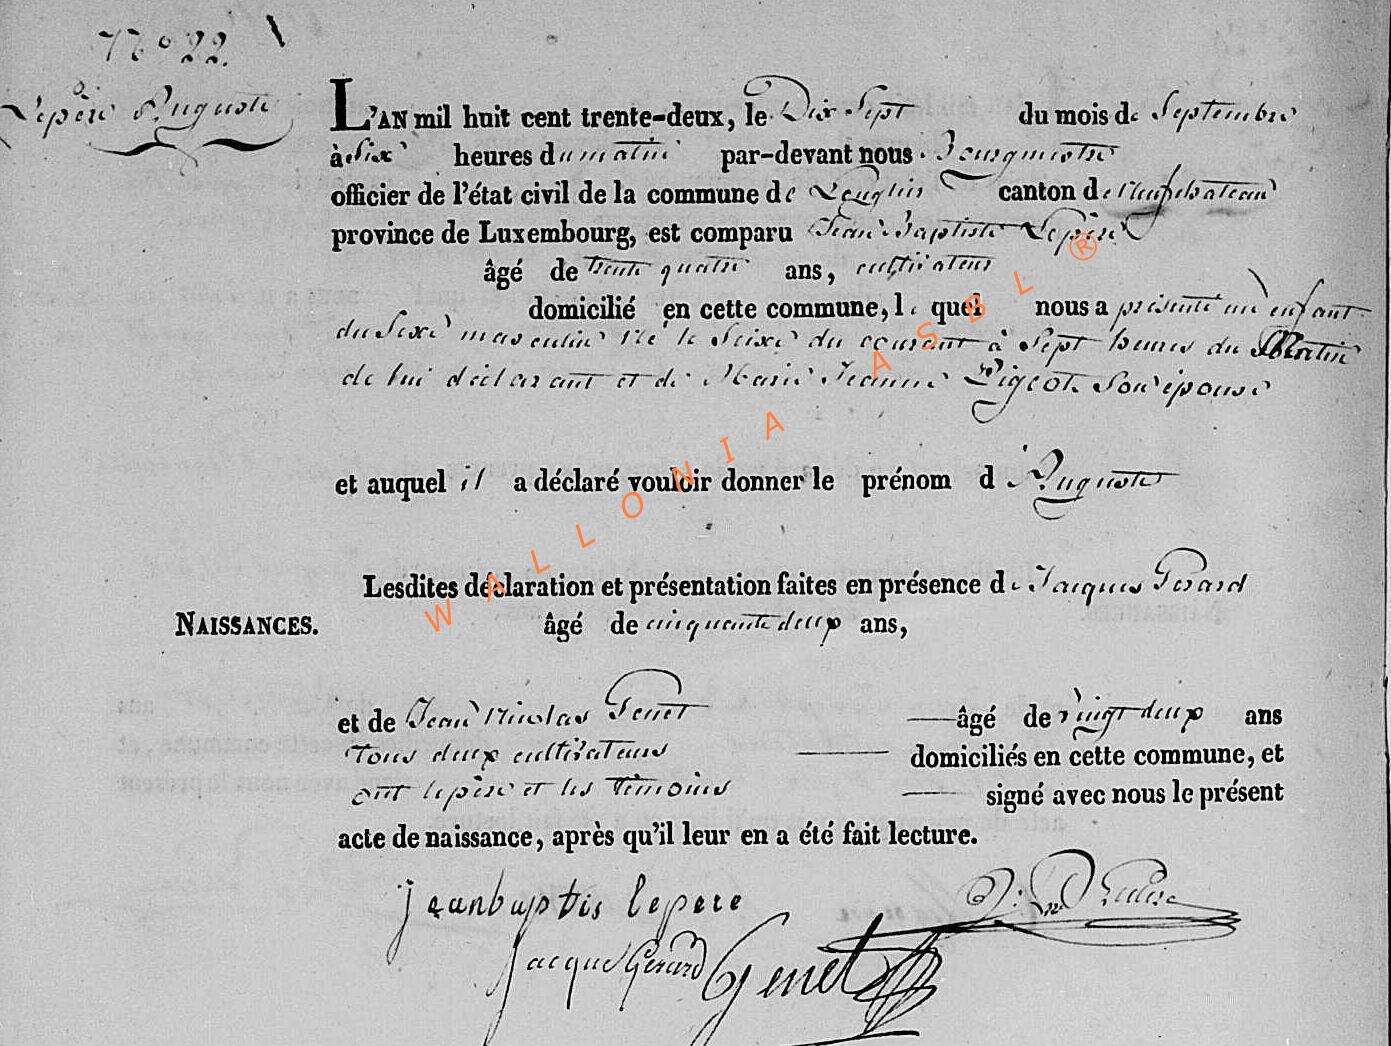 N.º 22.
Lepère Auguste
L'AN mil huit cent trente-deux, le Dix Sept du mois de Septembre
à Six heures du matin par-devant nous Bourgmestre
officier de l'état civil de la commune de Léglise canton de Neufchateau
province de Luxembourg, est comparu Jean Baptiste Lepère
âgé de trente quatre ans, cultivateur
domicilié en cette commune, le quel nous a présenté un enfant
du Sexe masculin Né le Seize du courant à Sept heures du Matin
de lui déclarant et de Marie Jeanne Pigeot Son épouse
et auquel il a déclaré vouloir donner le prénom d'Auguste
Lesdites déclaration et présentation faites en présence de Jacques Gerard
NAISSANCES.
âgé de cinquante deux ans,
et de Jean Nicolas Genet âgé de vingt deux ans
Tous deux cultivateurs domiciliés en cette commune, et
ont le père et les témoins signé avec nous le présent
acte de naissance, après qu'il leur en a été fait lecture.
jeanbaptis lepere
jacque Gerard Genet
WALLONIA ASBL ®